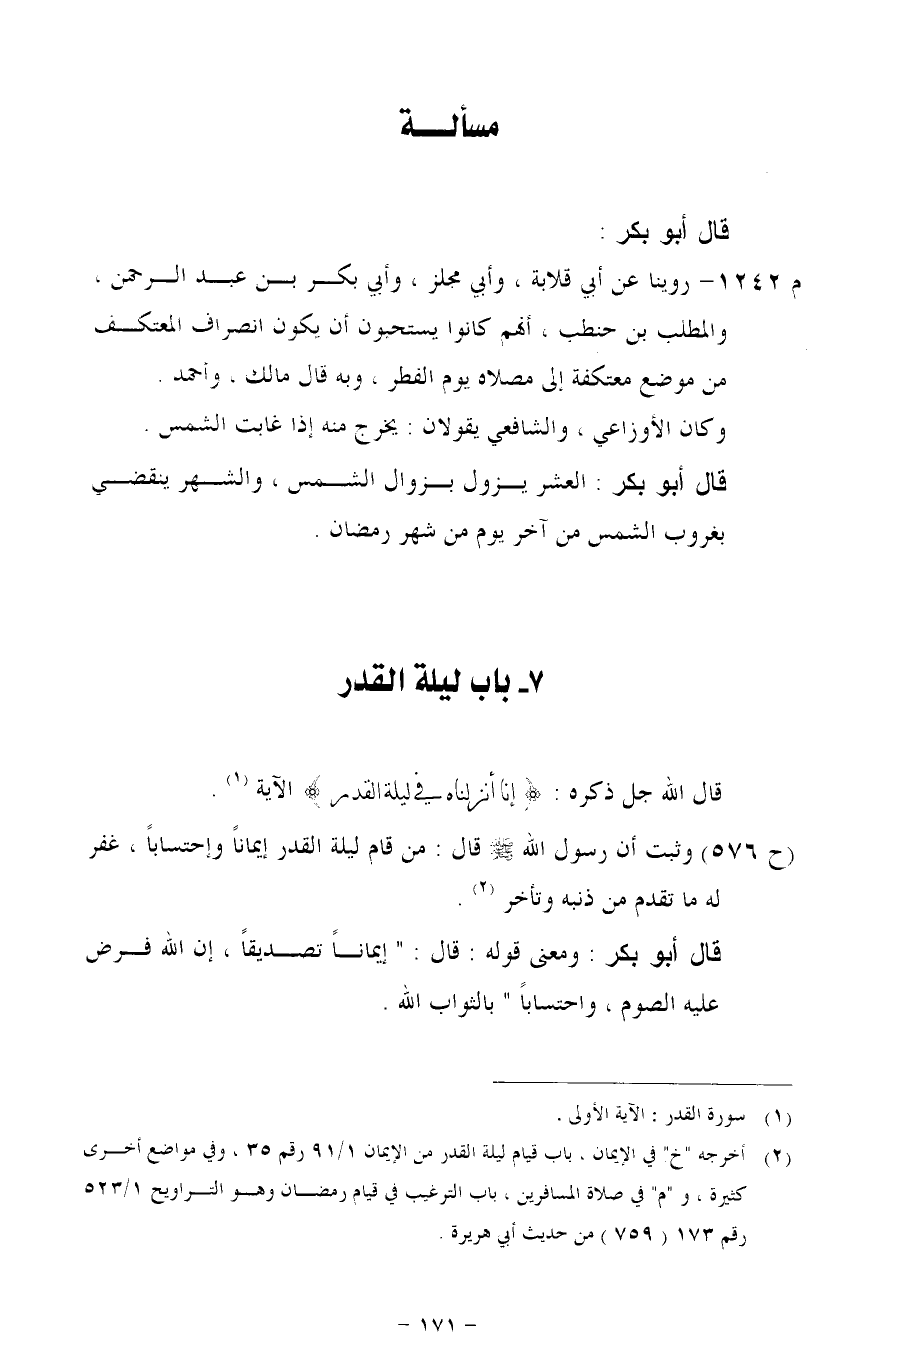 مسألة
قال أبو بكر :
م ١٢٤٢- روينا عن أبي قلابة ، وأبي مجلز ، وأبي بكر بن عبد الرحمن ،
والمطلب بن حنطب ، أنهم كانوا يستحبون أن يكون انصراف المعتكف
من موضع معتكفة إلى مصلاه يوم الفطر ، وبه قال مالك ، وأحمد .
وكان الأوزاعي ، والشافعي يقولان : يخرج منه إذا غابت الشمس .
قال أبو بكر : العشر يزول بزوال الشمس ، والشهر ينقضي
بغروب الشمس من آخر يوم من شهر رمضان .
٧ـ باب ليلة القدر
قال الله جل ذكره : ﴿ إنا أنزلناه في ليلة القدر ﴾ الآية (١) .
(ح ٥٧٦) وثبت أن رسول الله ﷺ قال : من قام ليلة القدر إيماناً وإحتساباً ، غفر
له ما تقدم من ذنبه وتأخر (٢) .
قال أبو بكر : ومعنى قوله : قال : " إيماناً تصديقاً ، إن الله فرض
عليه الصوم ، واحتساباً " بالثواب الله .
(١) سورة القدر : الآية الأولى .
(٢) أخرجه "خ" في الإيمان ، باب قيام ليلة القدر من الإيمان ٩١/١ رقم ٣٥ ، وفي مواضع أخرى
كثيرة ، و "م" في صلاة المسافرين ، باب الترغيب في قيام رمضان وهو التراويح ٥٢٣/١
رقم ١٧٣ ( ٧٥٩ ) من حديث أبي هريرة .
- ١٧١ -